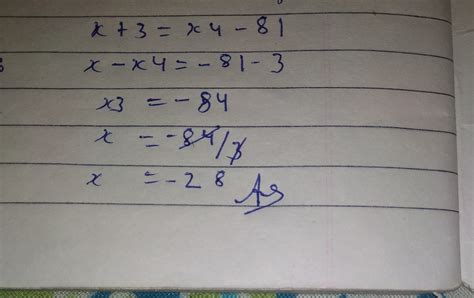 x + 3 = x4 - 81
x - x4 = -81 - 3
x3 = -84
x = -84/3
x = -28 As